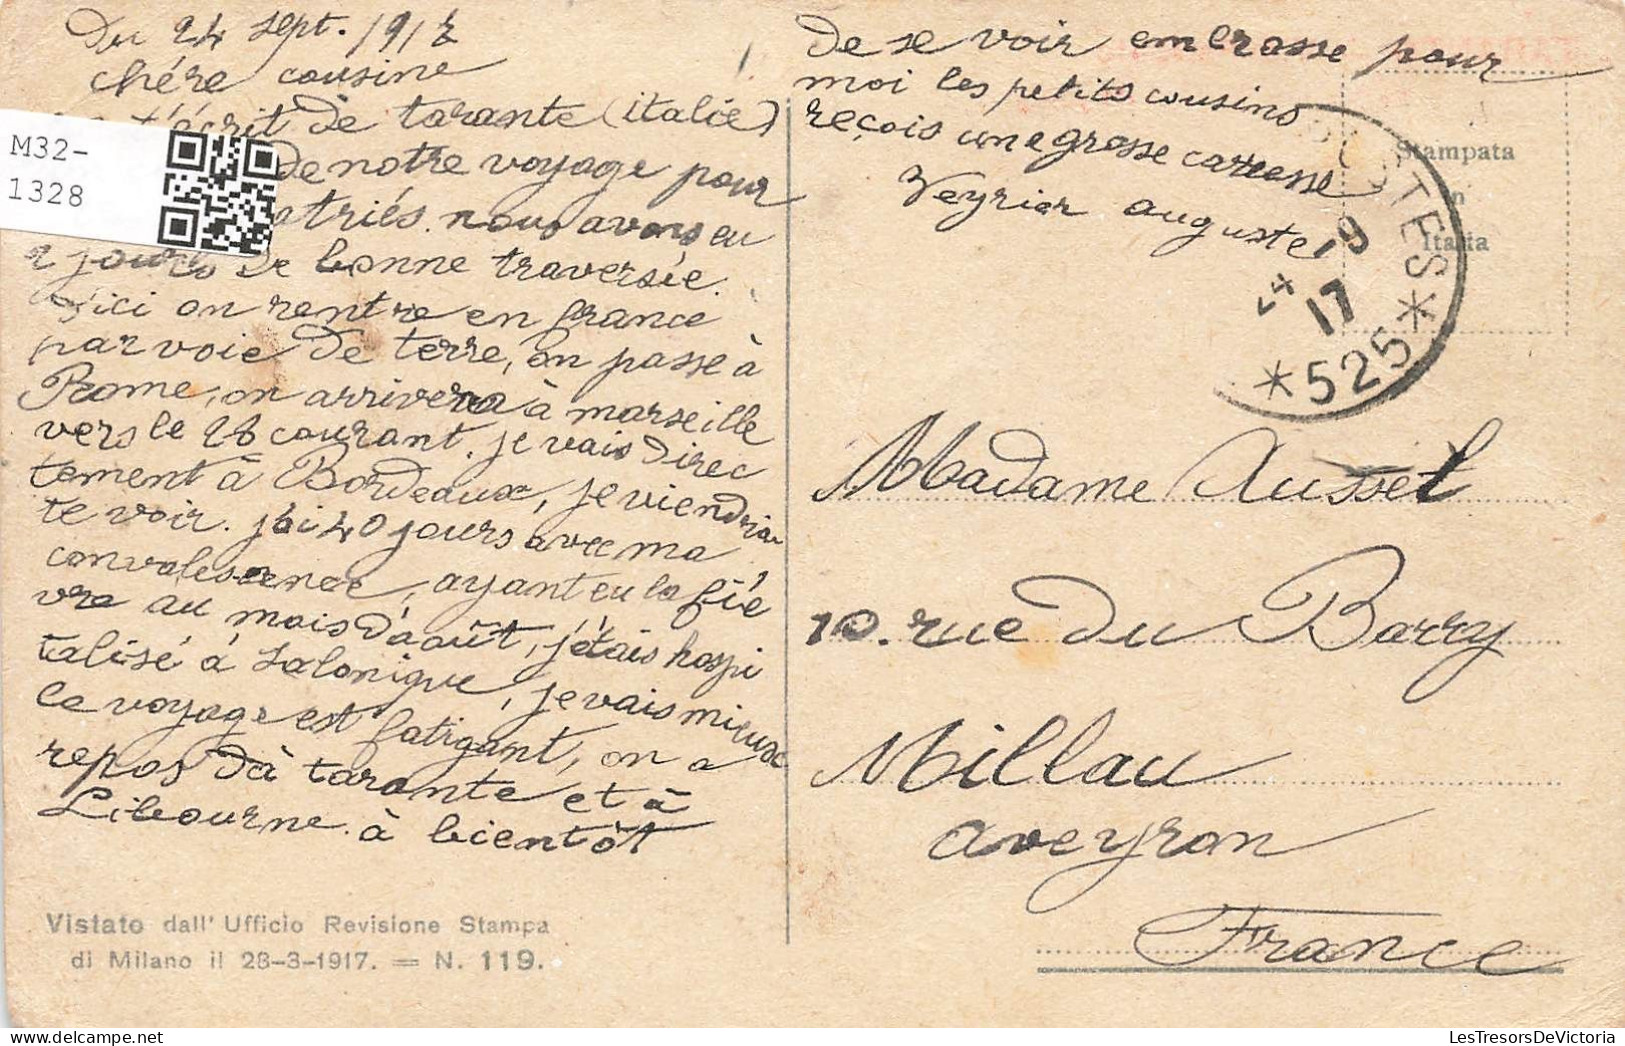 Du 24 sept. 1917
chére cousine
t'écrit de tarante (italie)
de notre voyage pour
atriés. nous avons eu
2 jours de bonne traversée.
d'ici on rentre en france
par voie de terre, on passe à
Rome, on arrivera à marseille
vers le 28 courant. je vais direc
tement à Bordeaux, je viendrai
te voir. j'ai 40 jours avec ma
convalescence, ayant eu la fiè
vre au mois d'août, j'étais hospi
talisé à Salonique, je vais mieux
le voyage est fatigant, on a
repos dà tarante et à
Libourne. à bientôt
de se voir embrasse pour
moi les petits cousins
reçois une grosse carresse
Veyrier auguste
M32-
1328
Stampata
in
Italia
POSTES
24 -9
17
*525*
Madame Aussel
10. rue du Barry
Millau
aveyron
France
Vistato dall' Ufficio Revisione Stampa
di Milano il 28-3-1917. = N. 119.
LesTresorsDeVictoria